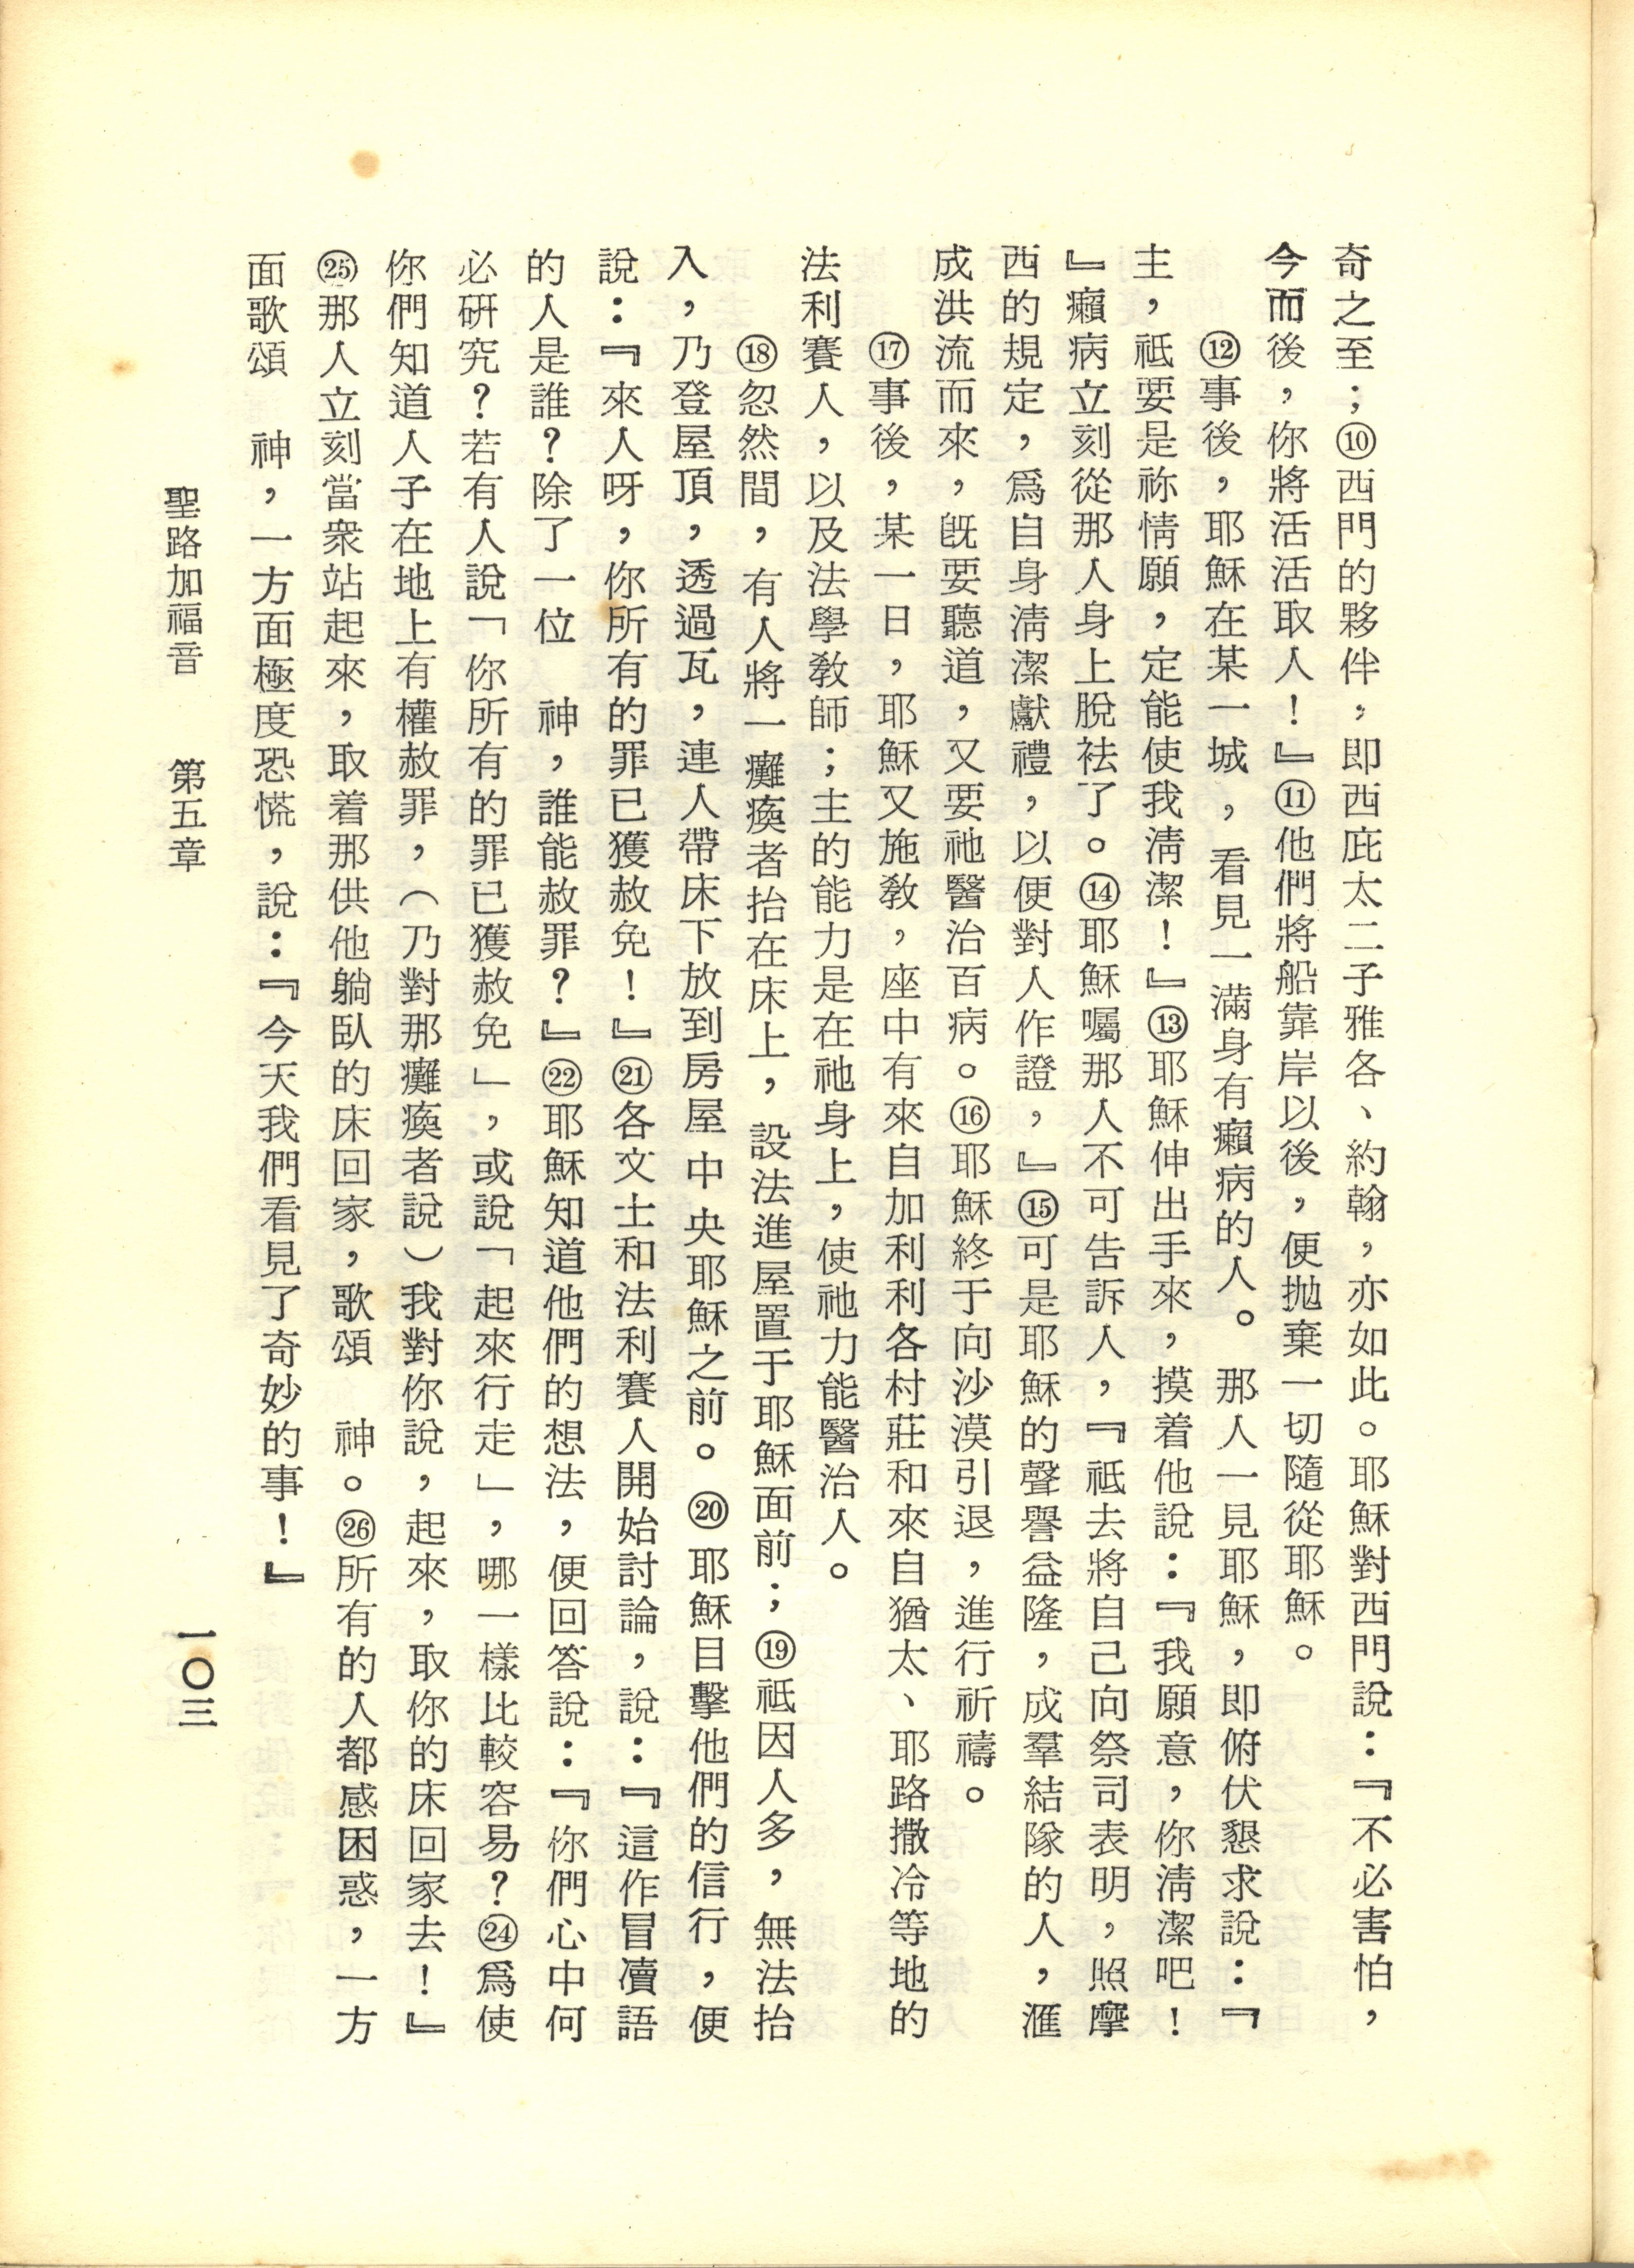 奇之至；⑩西門的夥伴，即西庇太二子雅各、約翰，亦如此。耶穌對西門說：『不必害怕，
今而後，你將活活取人！』⑪他們將船靠岸以後，便拋棄一切隨從耶穌。
⑫事後，耶穌在某一城，看見一滿身有癩病的人。那人一見耶穌，即俯伏懇求說：『
主，祗要是祢情願，定能使我淸潔！』⑬耶穌伸出手來，摸着他說：『我願意，你淸潔吧！
』癩病立刻從那人身上脫祛了。⑭耶穌囑那人不可告訴人，『祗去將自己向祭司表明，照摩
西的規定，爲自身淸潔獻禮，以便對人作證，』⑮可是耶穌的聲譽益隆，成羣結隊的人，滙
成洪流而來，旣要聽道，又要祂醫治百病。⑯耶穌終于向沙漠引退，進行祈禱。
⑰事後，某一日，耶穌又施敎，座中有來自加利利各村莊和來自猶太、耶路撒冷等地的
法利賽人，以及法學敎師；主的能力是在祂身上，使祂力能醫治人。
⑱忽然間，有人將一癱瘓者抬在床上，設法進屋置于耶穌面前；⑲祗因人多，無法抬
入，乃登屋頂，透過瓦，連人帶床下放到房屋中央耶穌之前。⑳耶穌目擊他們的信行，便
說：『來人呀，你所有的罪已獲赦免！』㉑各文士和法利賽人開始討論，說：『這作冒瀆語
的人是誰？除了一位　神，誰能赦罪？』㉒耶穌知道他們的想法，便回答說：『你們心中何
必硏究？若有人說「你所有的罪已獲赦免」，或說「起來行走」，哪一樣比較容易？㉔爲使
你們知道人子在地上有權赦罪，（乃對那癱瘓者說）我對你說，起來，取你的床回家去！』
㉕那人立刻當衆站起來，取着那供他躺臥的床回家，歌頌　神。㉖所有的人都感困惑，一方
面歌頌　神，一方面極度恐慌，說：『今天我們看見了奇妙的事！』
聖路加福音　第五章　一〇三